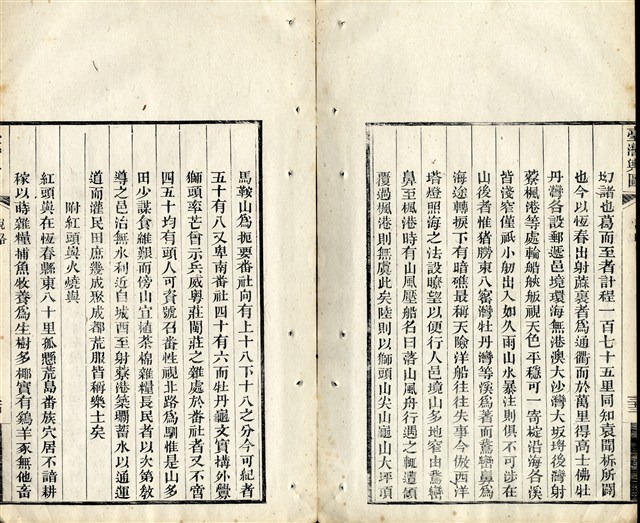 臺灣輿圖
幻諸也葛而至者計程一百七十五里同知袁聞柝所闢
也今以恆春出射蔴裏者為通衢而於萬里得高士佛牡
丹灣各設郵遞邑境環海無港澳大沙灣大坂埓後灣射
藔楓港等處輪船舨視天色平穩可一寄椗沿海各溪
皆淺窄僅祇小舠出入如久雨山水暴注則俱不可涉在
山後者惟豬朥束八磘灣牡丹灣等溪為著而鵞鑾鼻為
海途轉捩下有暗礁最稱天險洋船往往失事今倣西洋
塔燈照海之法設瞭望以便行人邑境山多地窄由鵞鑾
鼻至楓港時有山風壓船名曰落山風舟行遇之輒遭傾
覆過楓港則無虞此矣陸則以獅頭山尖山龜山大坪頂
馬鞍山為扼要番社向有上十八下十八之分今可紀者
五十有八又卑南番社四十有六而牡丹龜文實搆外釁
獅頭率芒曾示兵威粵莊閩莊之雜處於番社者又不啻
四五十均有頭人可資號召番性視北路為馴惟是山多
田少謀食維艱而傍山宜植茶棉雜糧長民者以次第教
導之邑治無水利近自城西至射藔港築壩蓄水以通運
道而灌民田庶幾成聚成都荒服皆稱樂土矣
附紅頭與火燒與
紅頭與在恆春縣東八十里孤懸荒島番族穴居不諳耕
稼以時雜糧捕魚牧養為生樹多椰實有鷄羊豕無他畜
說略